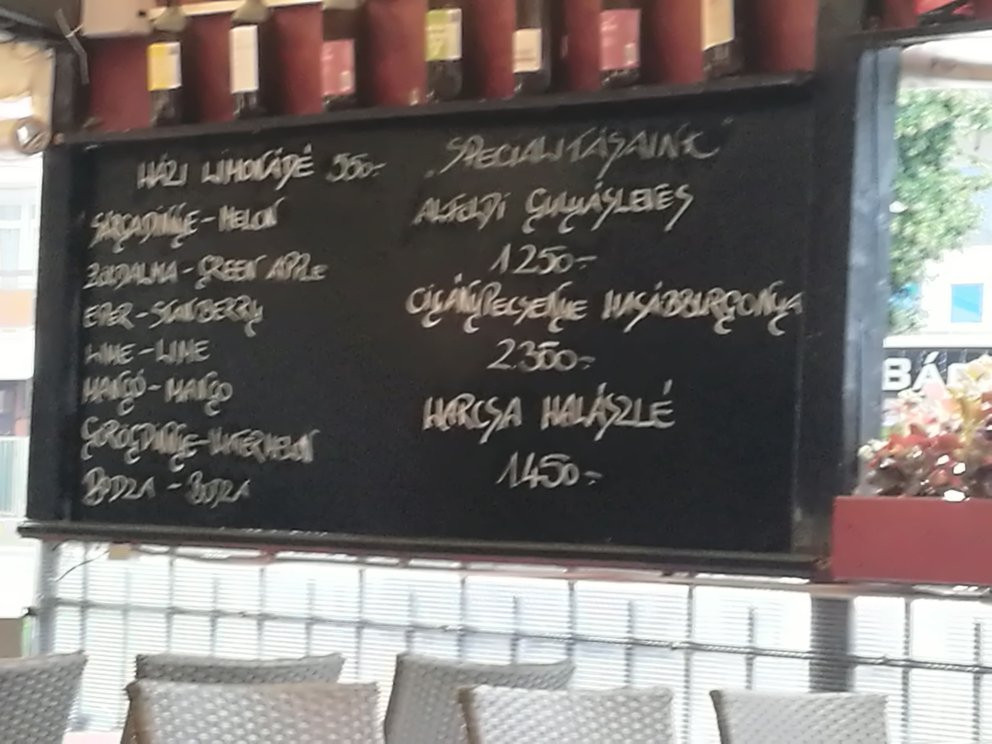 HÁZI LIMONÁDÉ 550.-
SÁRGADINNYE - MELON
ZÖLDALMA - GREEN APPLE
EPER - STAWBERRY
LIME - LIME
MANGÓ - MANGO
GÖRÖGDINNYE - WATERMELON
BODZA - BODZA
"SPECIALITÁSAINK"
ALFÖLDI GULYÁSLEVES
1250.-
CIGÁNYPECSENYE HASÁBBURGONYA
2350.-
HARCSA HALÁSZLÉ
1450.-
BÁ